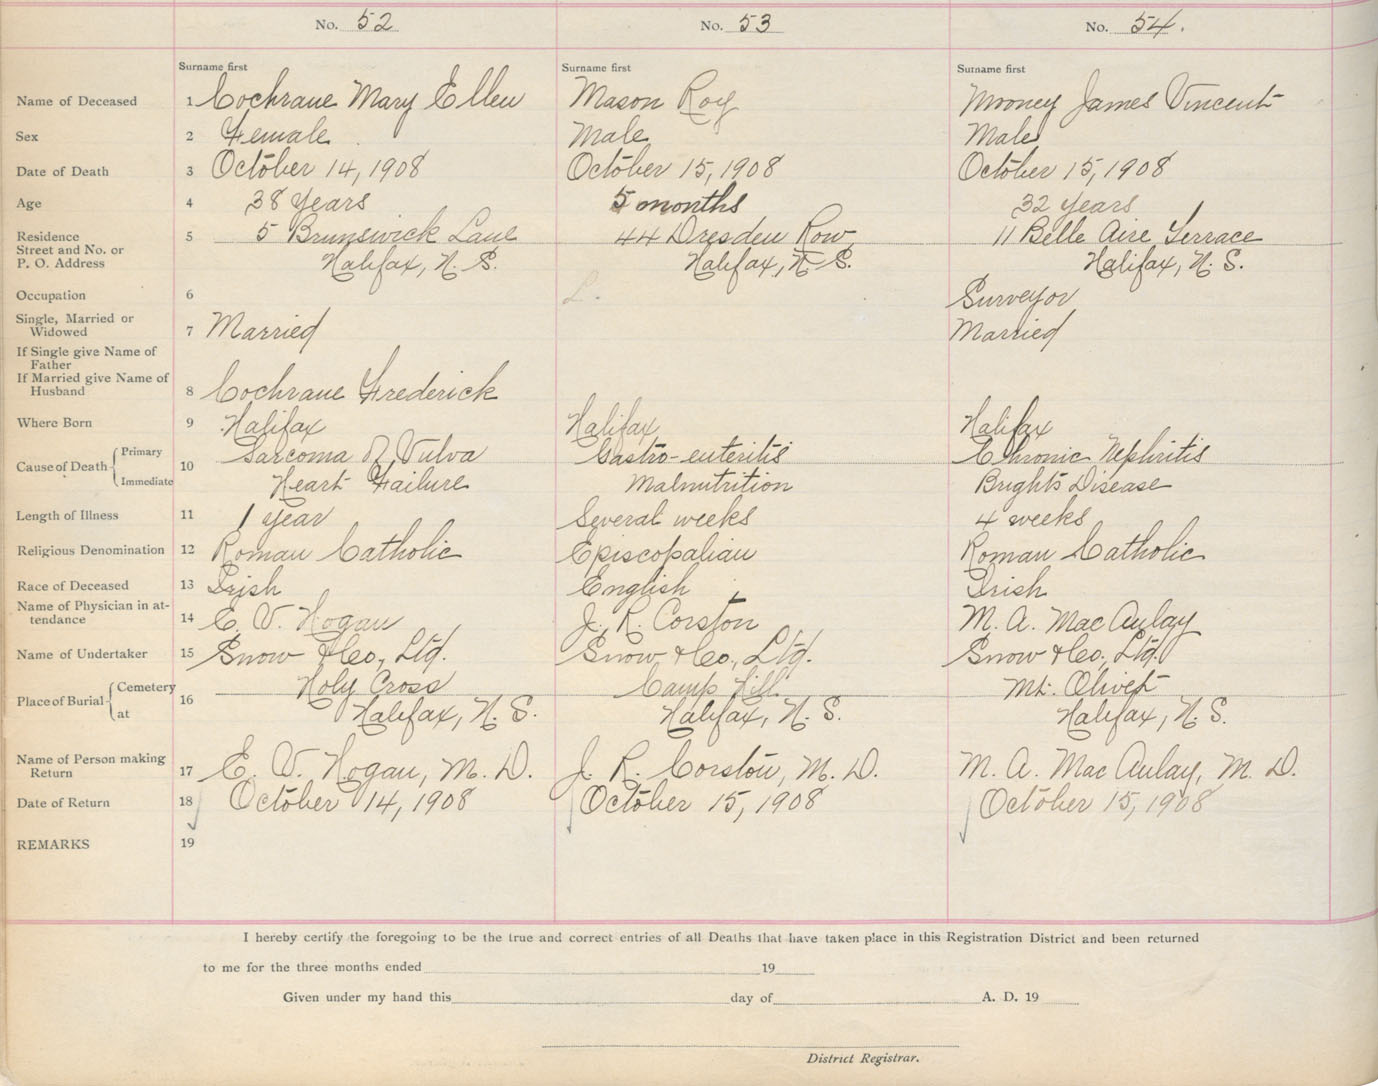 No. 52 No. 53 No. 54.
Surname first Surname first Surname first
Name of Deceased 1 Cochrane Mary Ellen Mason Roy Mooney James Vincent
Sex 2 Female Male Male
Date of Death 3 October 14, 1908 October 15, 1908 October 15, 1908
Age 4 38 Years 5 months 32 years
Residence 5 5 Brunswick Lane 44 Dresden Row, 11 Belle Aire Terrace
Street and No. or
P. O. Address Halifax, N. S. Halifax, N. S. Halifax, N. S.
Occupation 6 Surveyor
Single, Married or
Widowed 7 Married Married
If Single give Name of
Father
If Married give Name of
Husband 8 Cochrane Frederick
Where Born 9 Halifax Halifax Halifax
Cause of Death Primary 10 Sarcoma of Vulva Gastro-enteritis Chronic Nephritis
Immediate Heart Failure Malnutrition Brights Disease
Length of Illness 11 1 year Several weeks 4 weeks
Religious Denomination 12 Roman Catholic Episcopalian Roman Catholic
Race of Deceased 13 Irish English Irish
Name of Physician in at-
tendance 14 E. V. Hogan J. R. Corston M. A. MacAulay
Name of Undertaker 15 Snow & Co., Ltd. Snow & Co., Ltd. Snow & Co., Ltd.
Place of Burial Cemetery 16 Holy Cross Camp Hill Mt. Olivet
at Halifax, N. S. Halifax, N. S. Halifax, N. S.
Name of Person making
Return 17 E. V. Hogan, M. D. J. R. Corston, M. D. M. A. MacAulay, M. D.
Date of Return 18 October 14, 1908 October 15, 1908 October 15, 1908
REMARKS 19
I hereby certify the foregoing to be the true and correct entries of all Deaths that have taken place in this Registration District and been returned
to me for the three months ended 19
Given under my hand this day of A. D. 19
District Registrar.